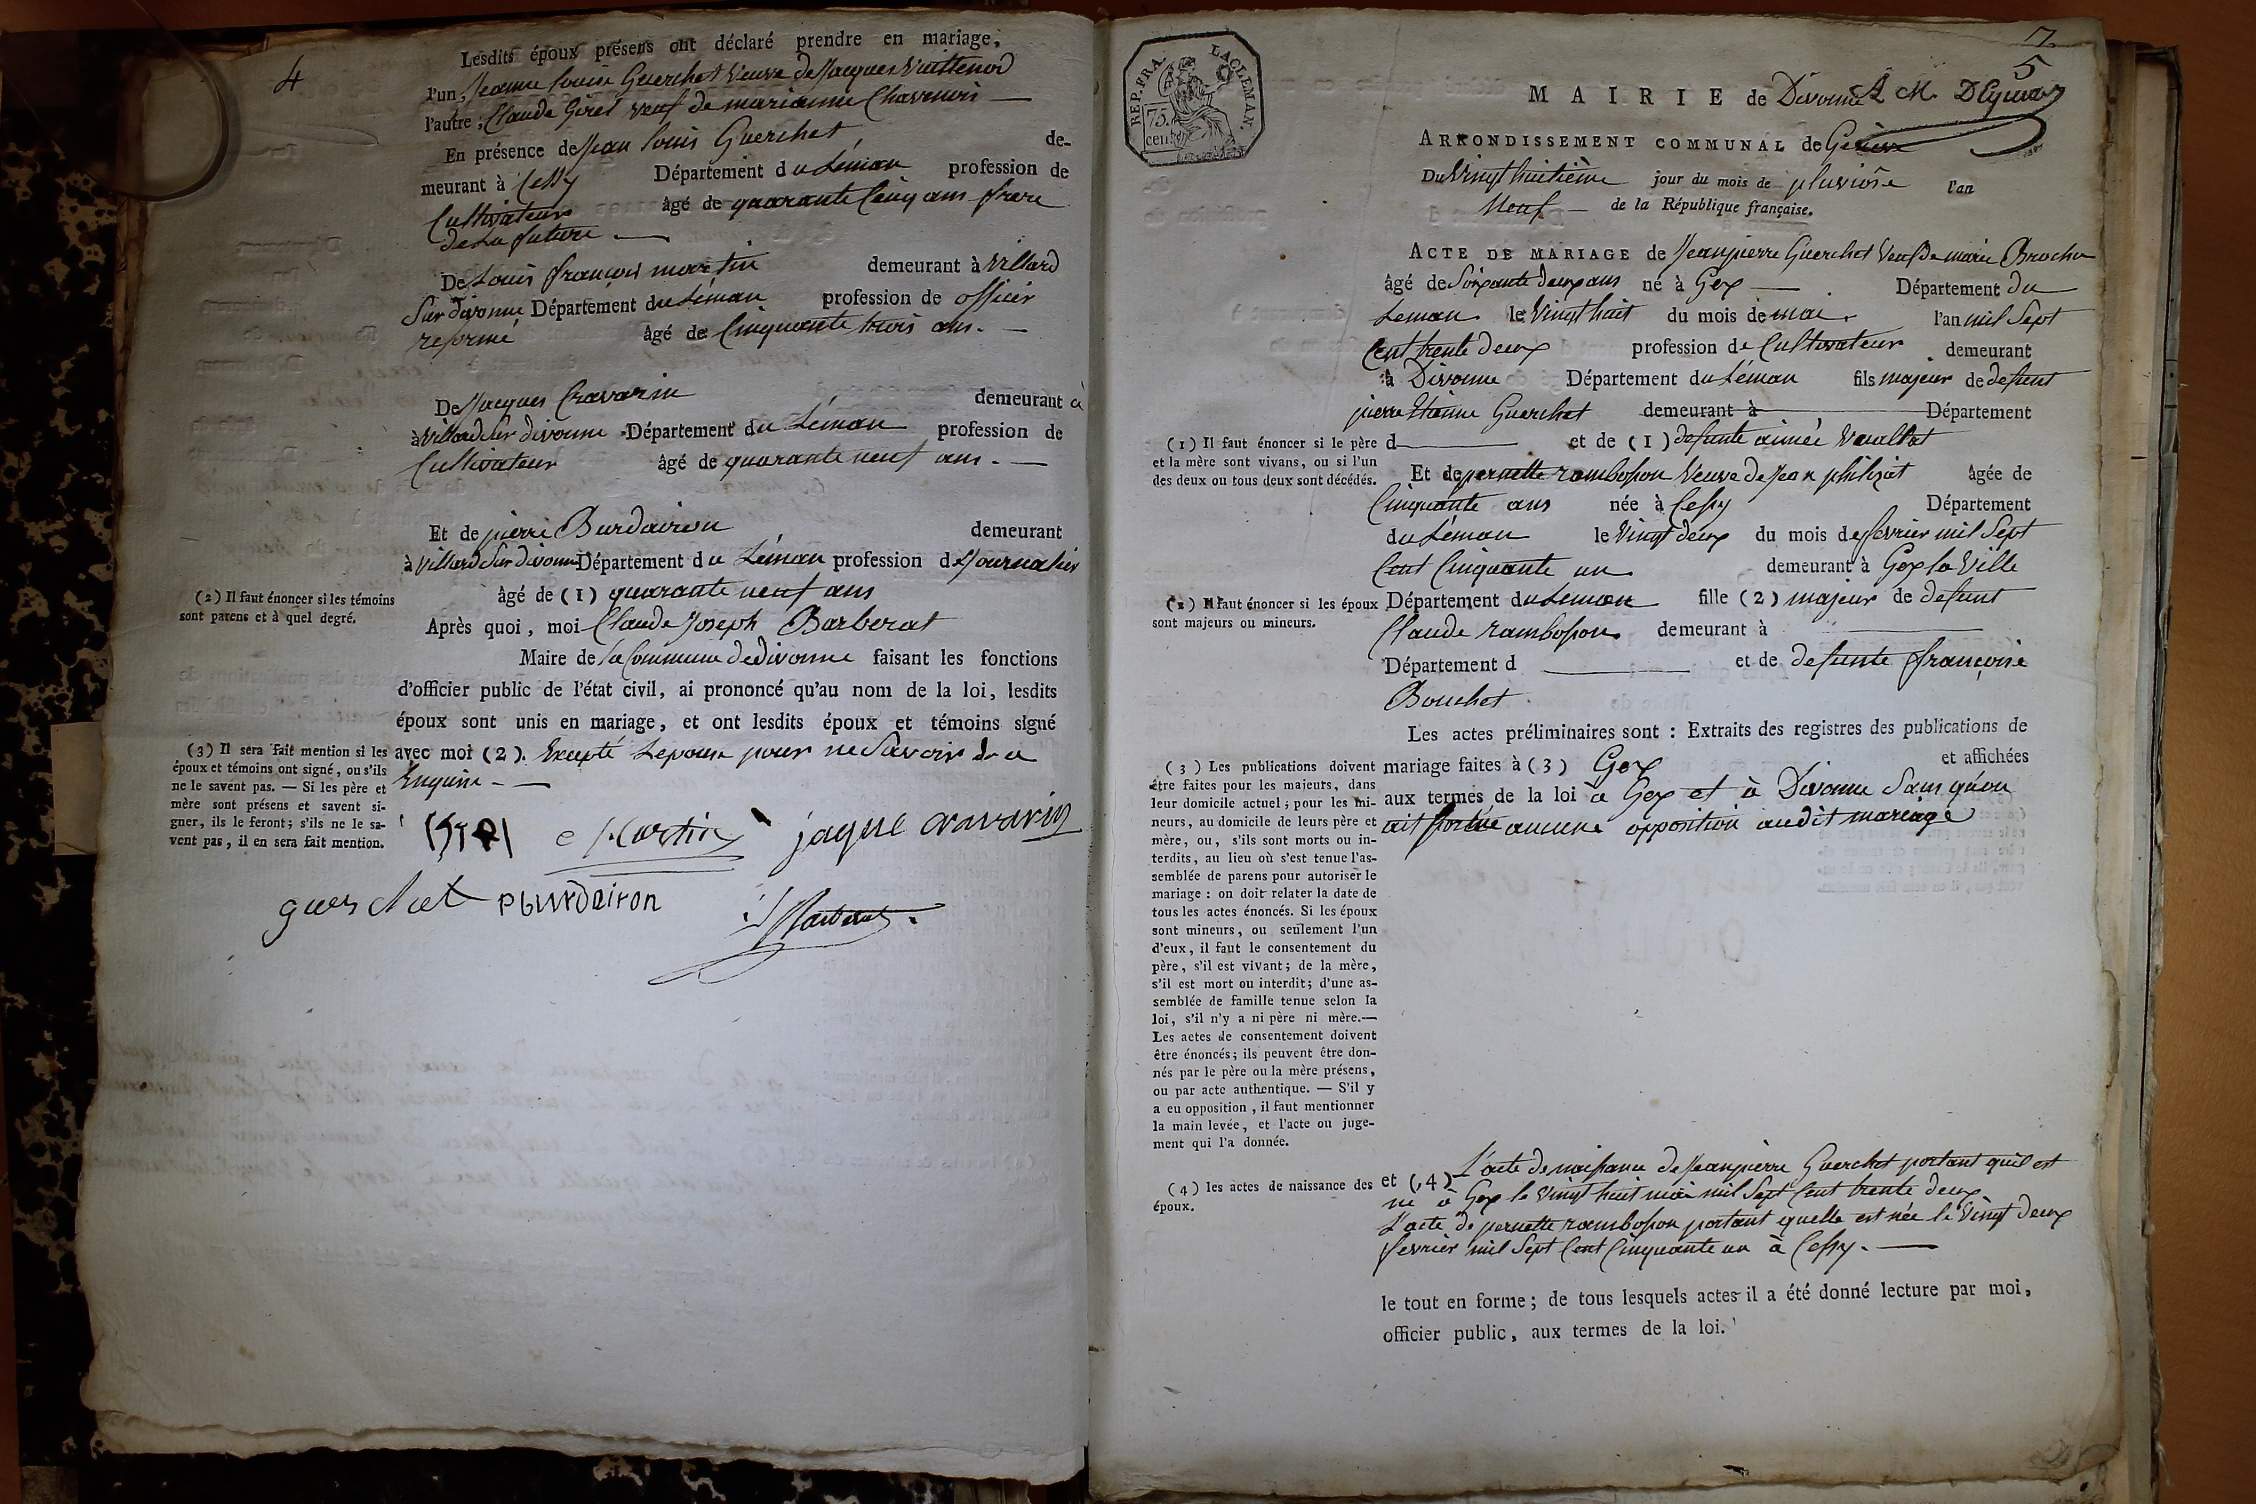 4
Lesdits époux présens ont déclaré prendre en mariage,
l'un, Jeanne Louise Guerchet veuve de Jacques Vuittenod
l'autre, Claude Girel veuf de marianne Chavenois
En présence de Jean Louis Guerchet de-
meurant à Cessy Département du Léman profession de
Cultivateur âgé de quarante Cinq ans frere
de La future.
De Louis françois martin demeurant à Villard
Sur divonne Département du Léman profession de officier
reformé âgé de Cinquante trois ans.
De Jacques Cravarin demeurant à
à Villard Sur divonne Département du Léman profession de
Cultivateur âgé de quarante neuf ans.
Et de pierre Burdairon demeurant
à Villard Sur divonne Département du Léman profession de Journalier
(2) Il faut énoncer si les témoins
sont parens et à quel degré.
âgé de (1) quarante neuf ans
Après quoi, moi Claude Joseph Barberat
Maire de la Commune de divonne faisant les fonctions
d'officier public de l'état civil, ai prononcé qu'au nom de la loi, lesdits
époux sont unis en mariage, et ont lesdits époux et témoins signé
avec moi (2). Excepté Lepouse pour ne Savoir de a
Enquise.
(3) Il sera fait mention si les
époux et témoins ont signé, ou s'ils
ne le savent pas. — Si les père et
mère sont présens et savent si-
gner, ils le feront; s'ils ne le sa-
vent pas, il en sera fait mention.
Martin jaque cravarin
guerchet pburdairon
Barberat
REP. FRA. 75. cent.
7
5
MAIRIE de Divonne
ARRONDISSEMENT COMMUNAL de Genève
Du Vingt huitième jour du mois de pluviôse l'an
Neuf de la République française.
ACTE DE MARIAGE de Jeanpierre Guerchet Veuf De marie Brochu
âgé de Soixante deux ans né à Gex Département du
Leman le Vingt huit du mois de mai l'an mil Sept
Cent trente deux profession de Cultivateur demeurant
à Divonne Département du Léman fils majeur de defunt
pierre Etienne Guerchet demeurant à Département
d et de (1) defunte aimée
(1) Il faut énoncer si le père
et la mère sont vivans, ou si l'un
des deux ou tous deux sont décédés.
Et de pernette rambosson Veuve de Jean philizat âgée de
Cinquante ans née à Cessy Département
du Léman le Vingt deux du mois de fevrier mil Sept
Cent Cinquante un demeurant à Gex la Ville
Département du Léman fille (2) majeur de defunt
(2) Il faut énoncer si les époux
sont majeurs ou mineurs.
Claude rambosson demeurant à
Département d et de defunte françoise
Bouchet
Les actes préliminaires sont : Extraits des registres des publications de
mariage faites à (3) Gex et affichées
aux termes de la loi a Gex et à Divonne Sans quéon
ait formé aucune opposition audit mariage
(3) Les publications doivent
être faites pour les majeurs, dans
leur domicile actuel; pour les mi-
neurs, au domicile de leurs père et
mère, ou, s'ils sont morts ou in-
terdits, au lieu où s'est tenue l'as-
semblée de parens pour autoriser le
mariage : on doit relater la date de
tous les actes énoncés. Si les époux
sont mineurs, ou seulement l'un
d'eux, il faut le consentement du
père, s'il est vivant; de la mère,
s'il est mort ou interdit; d'une as-
semblée de famille tenue selon la
loi, s'il n'y a ni père ni mère.—
Les actes de consentement doivent
être énoncés; ils peuvent être don-
nés par le père ou la mère présens,
ou par acte authentique. — S'il y
a eu opposition, il faut mentionner
la main levée, et l'acte ou juge-
ment qui l'a donnée.
(4) les actes de naissance des
époux.
et (4) L'acte de naissance de Jeanpierre Guerchet portant quil est
ne à Gex le Vingt huit mai mil Sept Cent trente deux
L'acte de pernette rambosson portant quelle est née le Vingt deux
fevrier mil Sept Cent Cinquante un à Cessy.
le tout en forme; de tous lesquels actes il a été donné lecture par moi,
officier public, aux termes de la loi.